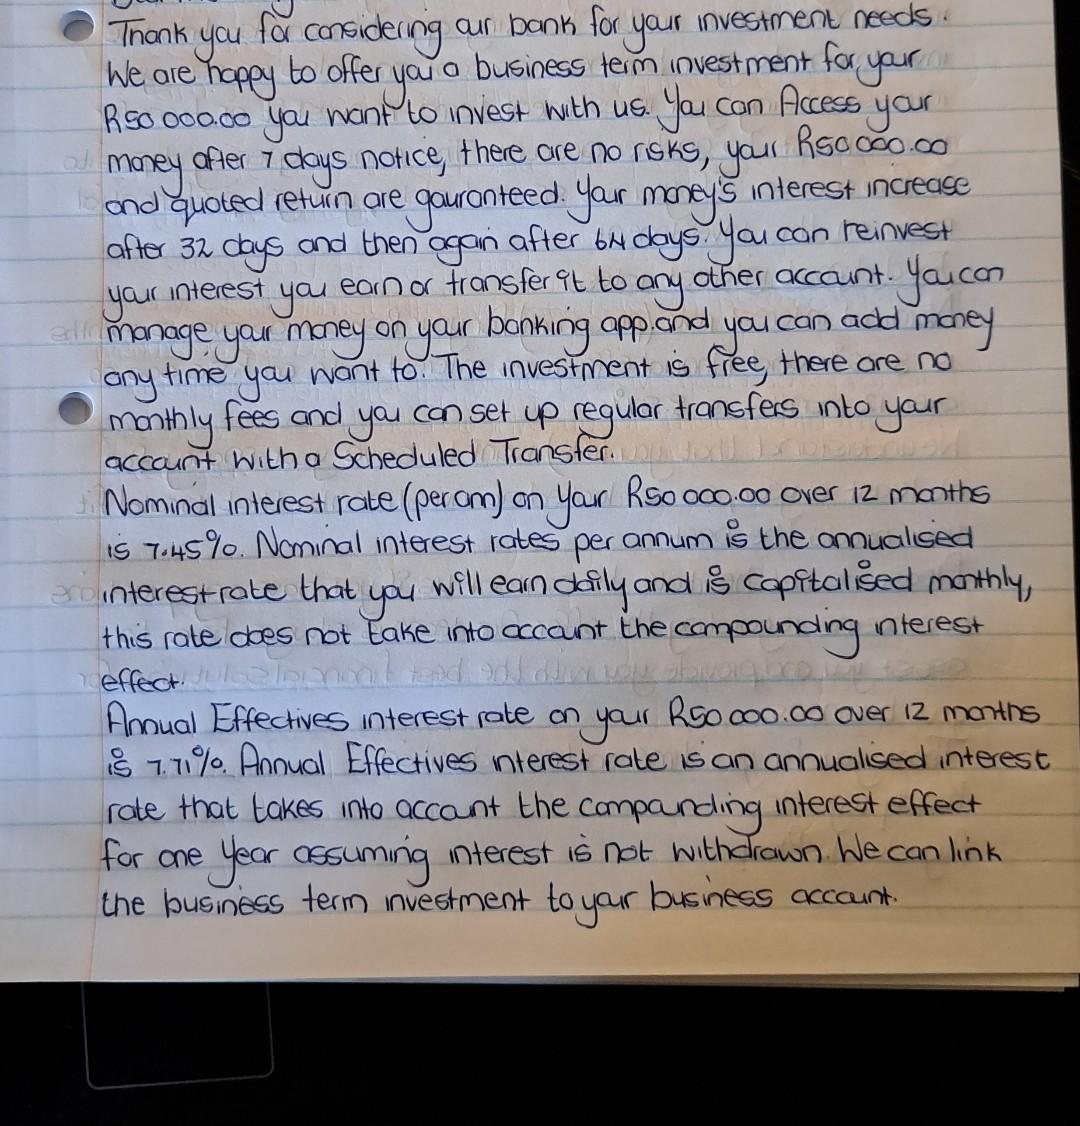 Thank you for considering our bank for your investment needs.
We are happy to offer you a business term investment for your
R50 000.00 you want to invest with us. You can Access your
money after 7 days notice, there are no risks, your R50 000.00
and quoted return are gauranteed. Your money's interest increase
after 32 days and then again after 64 days. You can reinvest
your interest you earn or transfer it to any other account. You can
manage your money on your banking app and you can add money
any time you want to. The investment is free, there are no
monthly fees and you can set up regular transfers into your
account with a Scheduled Transfer.
Nominal interest rate (per ann) on your R50 000.00 over 12 months
is 7.45%. Nominal interest rates per annum is the annualised
interest rate that you will earn daily and is capitalised monthly,
this rate does not take into account the compounding interest
effect.
Annual Effectives interest rate on your R50 000.00 over 12 months
is 7.71%. Annual Effectives interest rate is an annualised interest
rate that takes into account the compounding interest effect
for one year assuming interest is not withdrawn. We can link
the business term investment to your business account.